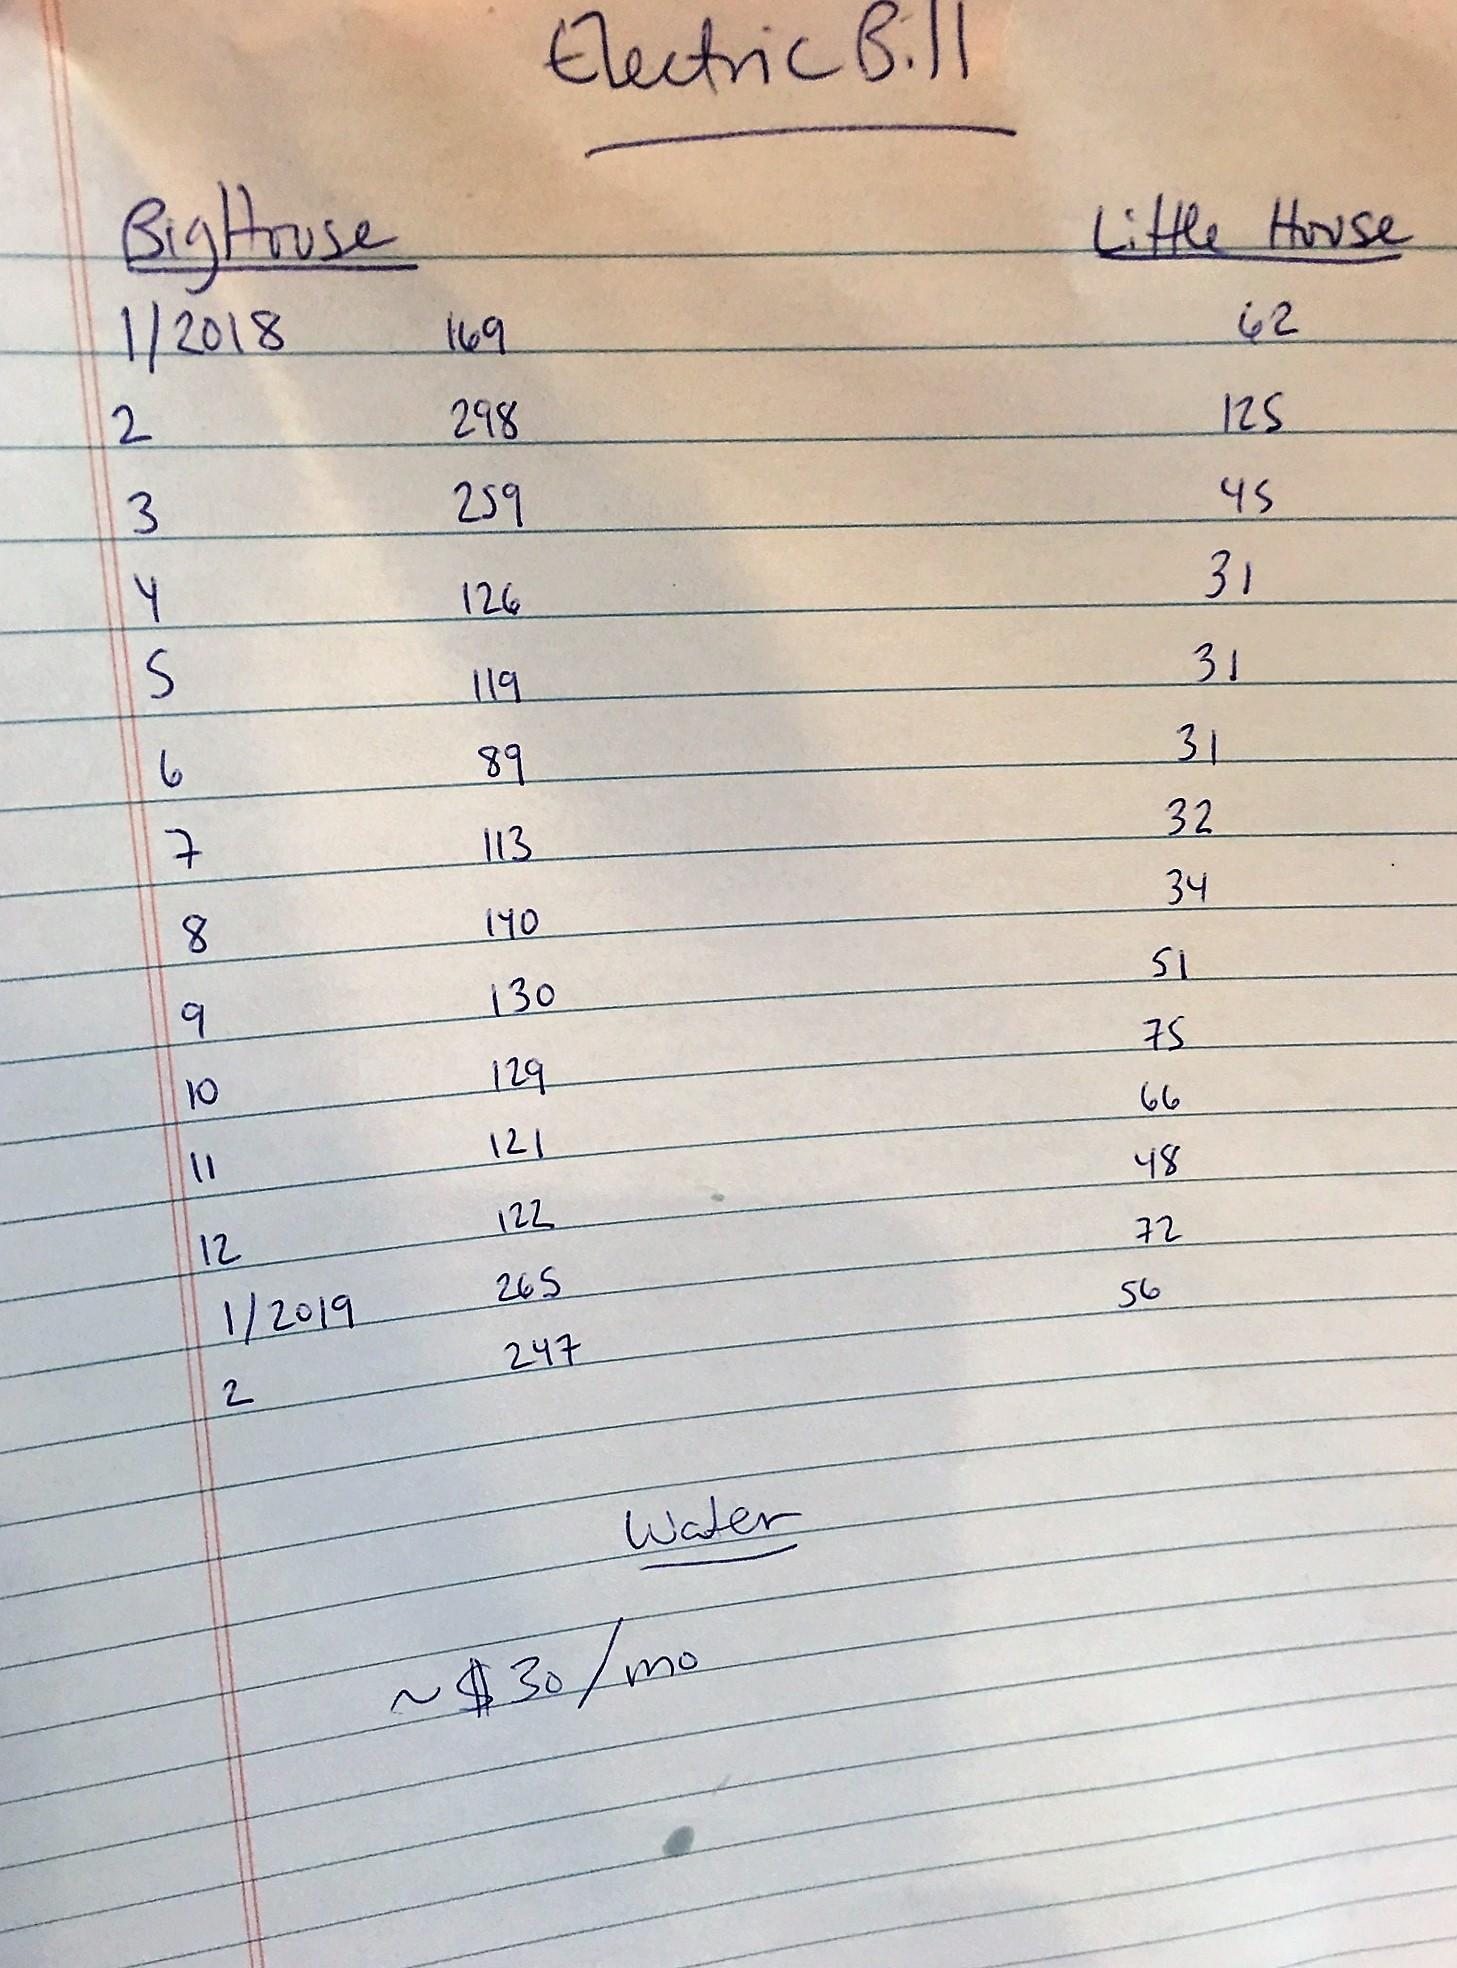 Electric Bill
Big House Little House
1/2018 169 62
2 298 125
3 259 45
4 126 31
5 119 31
6 89 31
7 113 32
8 140 34
9 130 51
10 129 75
11 121 66
12 122 48
1/2019 265 72
2 247 56
Water
~$30/mo